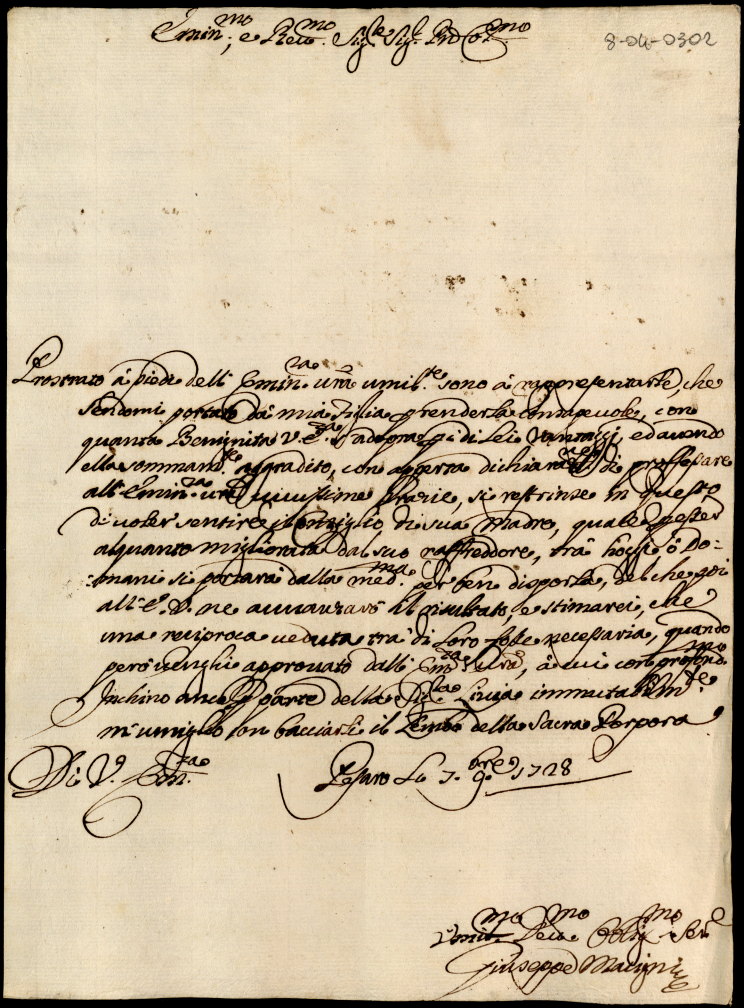 Emin.mo; e Reu.mo Sig.re Sig.r Pn Col.mo
8-04-0302
Prostrato à piedi dell' Emin.za urã umil.te sono à rappresentarle, che
sendomi portato dà mia Figlia p renderla consapeuole, con
quanta Benignità V. E.za s' adopra p i di Lei Vantaggi, ed auendo
ella sommam.te aggradito, con aperta dichiaraz.ne di professare
all' Emin.za urã uiuissime Grazie, si restrinse in questo
di uoler sentire il Consiglio di sua Madre, quale p esser
alquanto migliorata dal suo raffreddore, trà hoggi ò Do-
mani si portarà dalla med.ma per ben disporla, del che poi
all' E. V. ne auuanzarò il risultato, e stimarei, che
una reciproca ueduta trà di Loro fosse necessaria, quando
però uenghi approuato dall' Em.za Vurã, à cui con profond.mo
Inchino anco p parte della Sig.ra Liuia immutabilm.te
m' umiglio con bacciarli il Lembo della Sacra Porpora
Di V. Em.za Pesaro Li 7. 9.bre 1728
Vmil.mo Deu.mo Oblig.mo Ser.
Giuseppe